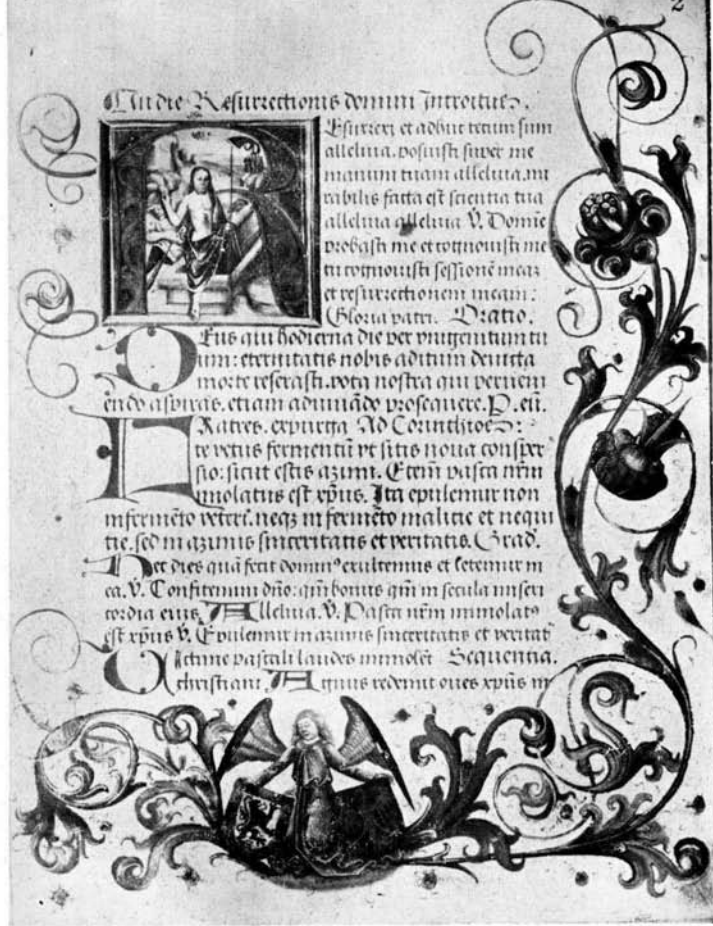 2
In die Resurrectionis domini Introitus.
Resurrexi et adhuc tecum sum
alleluia. posuisti super me
manum tuam alleluia. mi
rabilis facta est scientia tua
alleluia alleluia V̇. Domīe
probasti me et cognouisti me
tu cognouisti sessionē meaz
et resurrectionem meam:
Gloria patri. Oratio.
Deus qui hodierna die per vnigenitum tu
um: eternitatis nobis aditum deuicta
morte reserasti. vota nostra que preueni
ēndo aspiras. etiam adiuuādo prosequere. P. eū.
Fratres. expurga Ad Corinthios:
te vetus fermentū vt sitis noua consper
sio: sicut estis azimi. Etem pasca nr̄m
immolatus est xp̄us. Ita epulemur non
in fermēto veteri. neqz in fermēto malicie et nequi
tie. sed in azimis sinceritatis et veritatis. Grad.
Hec dies quā fecit dominꝰ exultemus et letemur in
ea. V̇. Confitemini dn̄o: qm̄ bonus qm̄ in secula miseri
cordia eius Alleluia. V̇. Pasca nr̄m immolatꝰ
est xp̄us V̇. Epulemur in azimis sinceritatis et veritat
Uictime pascali laudes immolēt Sequentia.
christiani Agnus redemit oues xp̄us in